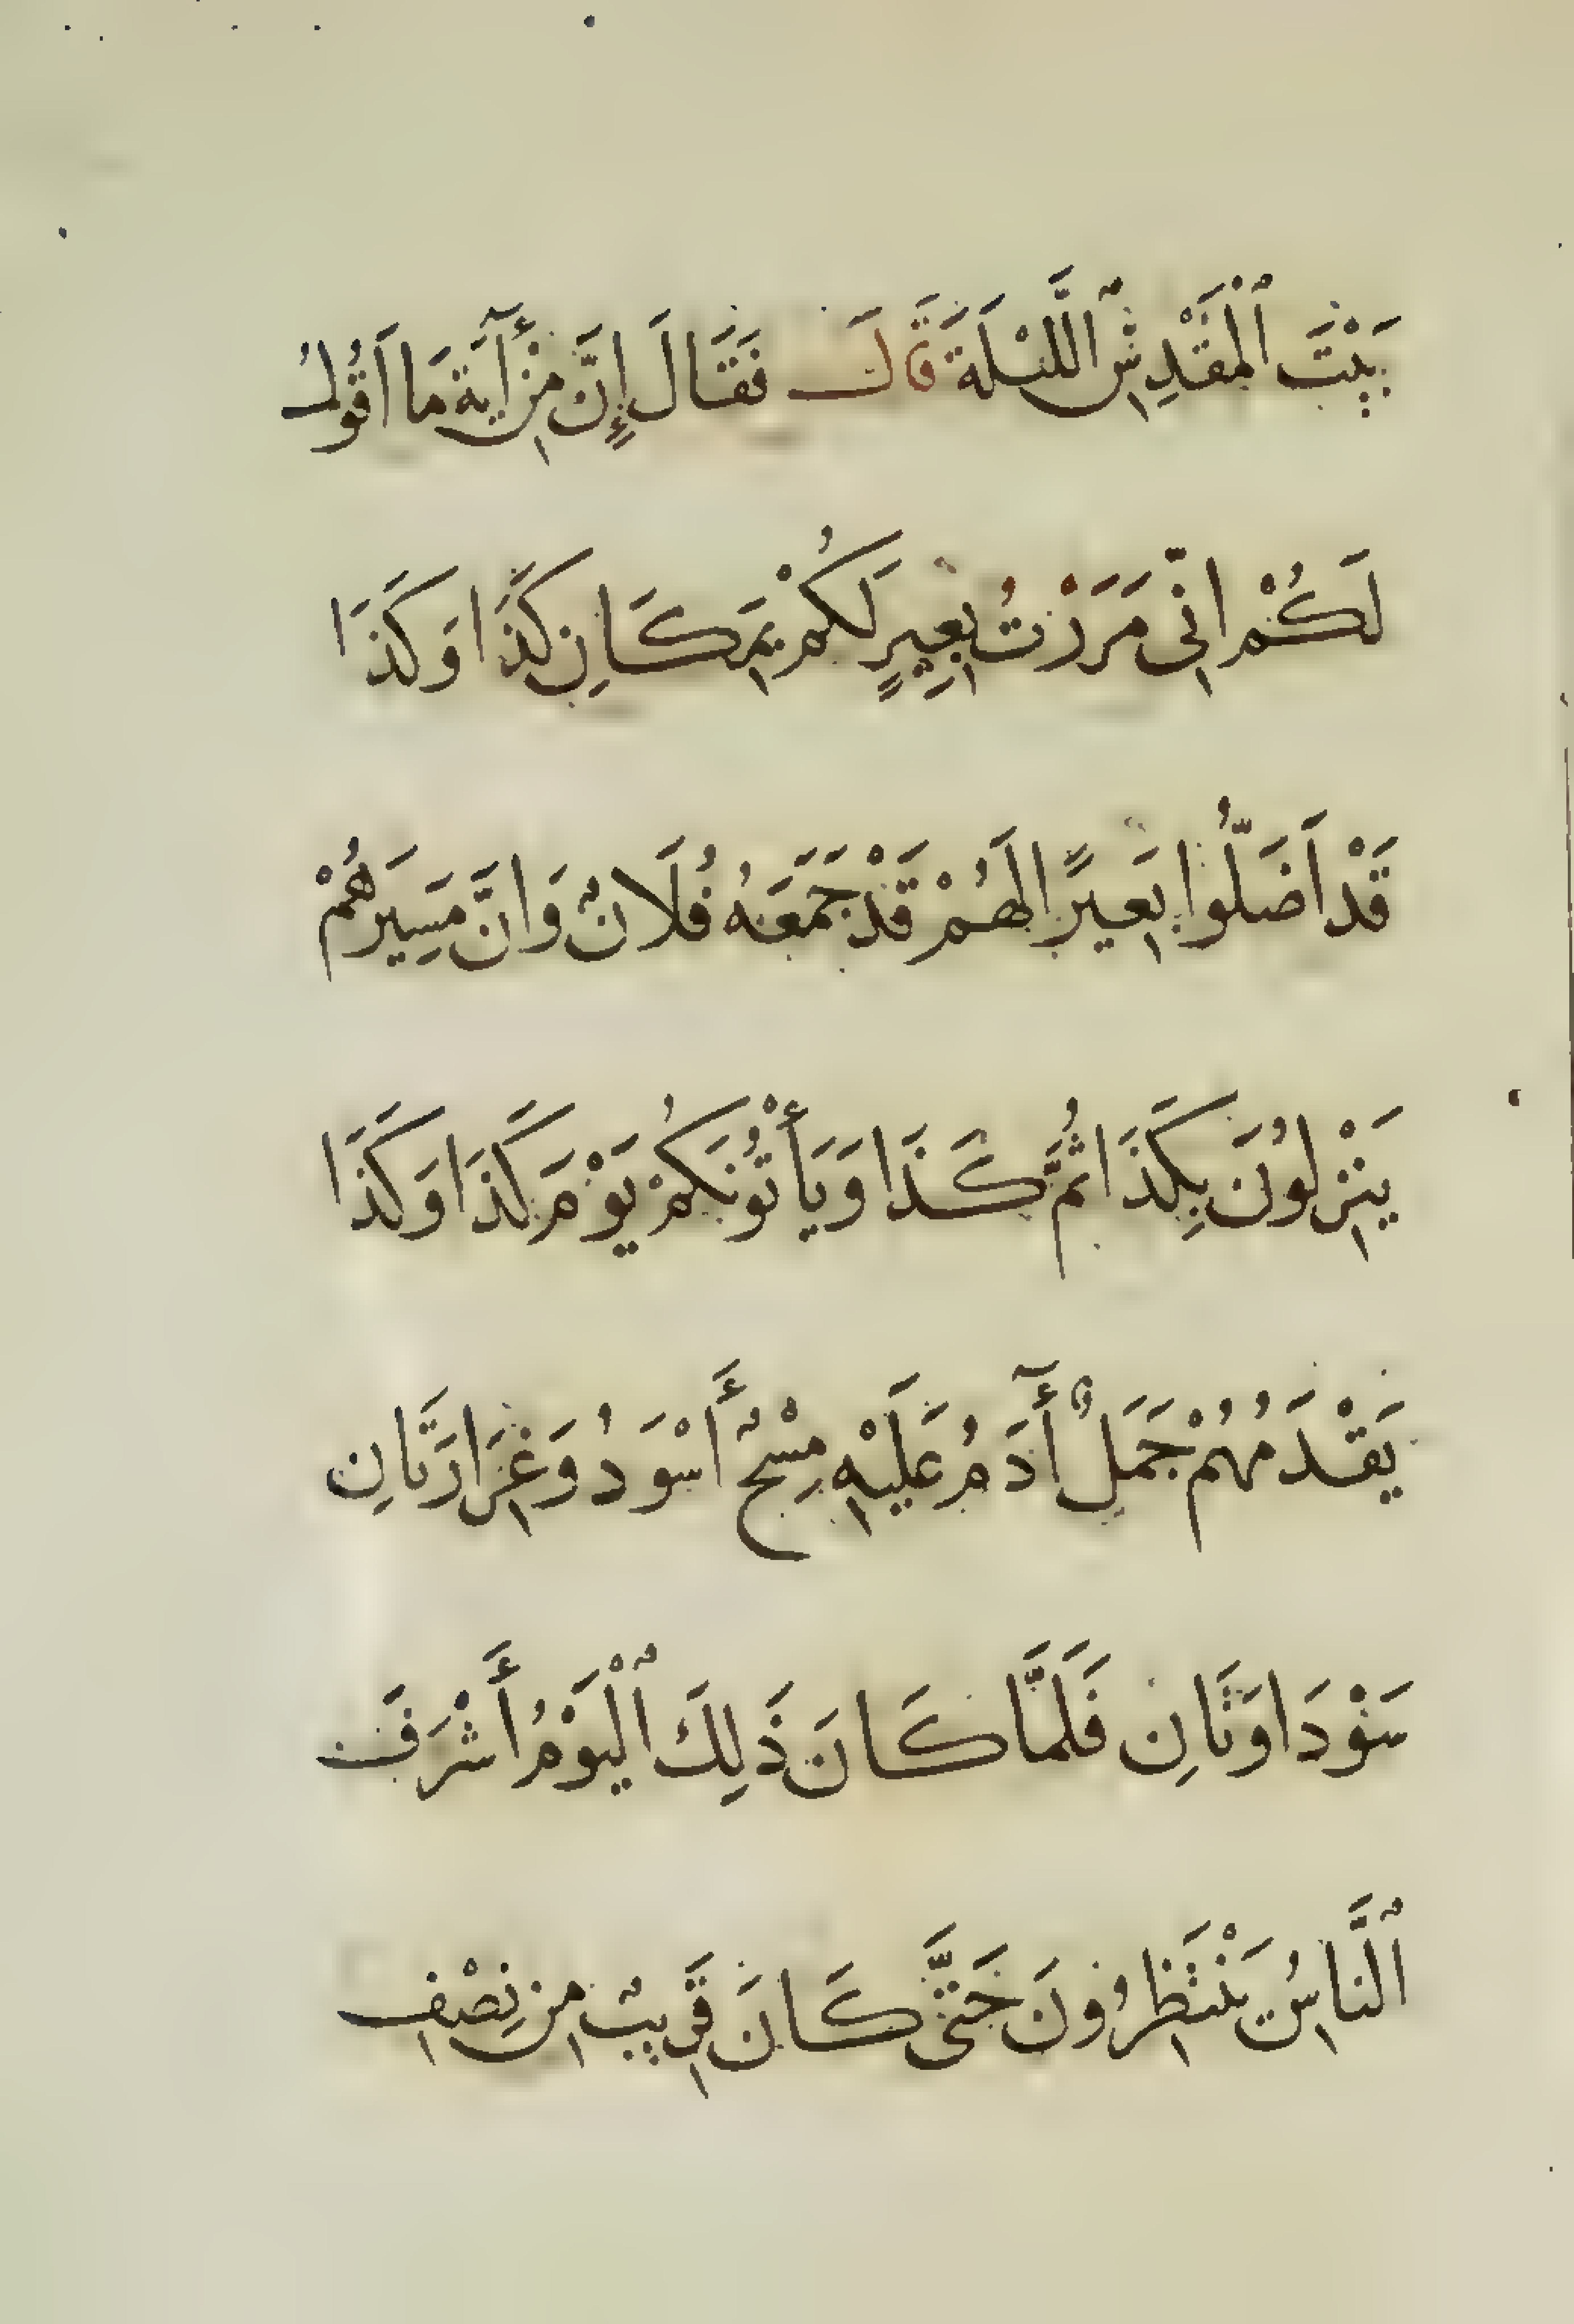 بَيْتَ ٱلْمَقْدِسِ ٱللَّيْلَةَ قَالَ فَقَالَ إِنَّ مِنْ أَيَةِ مَا اَقُولُ
لَكُمْ اِنِّى مَرَرْتُ بِعِيرٍ لَكُمْ بِمَكَانِ كَذَا وَكَذَا
قَدْ اَضَلُّوا بَعِيرًا لَهُمْ قَدْ جَمَعَهُ فُلَانٌ وَانَّ مَسِيَرهُمْ
يَنْزِلُونَ بِكَذَا ثُمَّ كَذَا وَيَأْتُونَكُمْ يَوْمَ كَذَا وَكَذَا
يَقْدَمُهُمْ جَمَلٌ أَدَمُ عَلَيْهِ مِسْحٌ أَسْوَدُ وَغِرَارَتَانِ
سَوْدَاوَتَانِ فَلَمَّا كَانَ ذَلِكَ ٱلْيَوْمُ أَشْرَفَ
ٱلنَّاسُ يَنْتَظِرُونَ حَتَّى كَانَ قَرِيبٌ مِنْ نِصْفِ